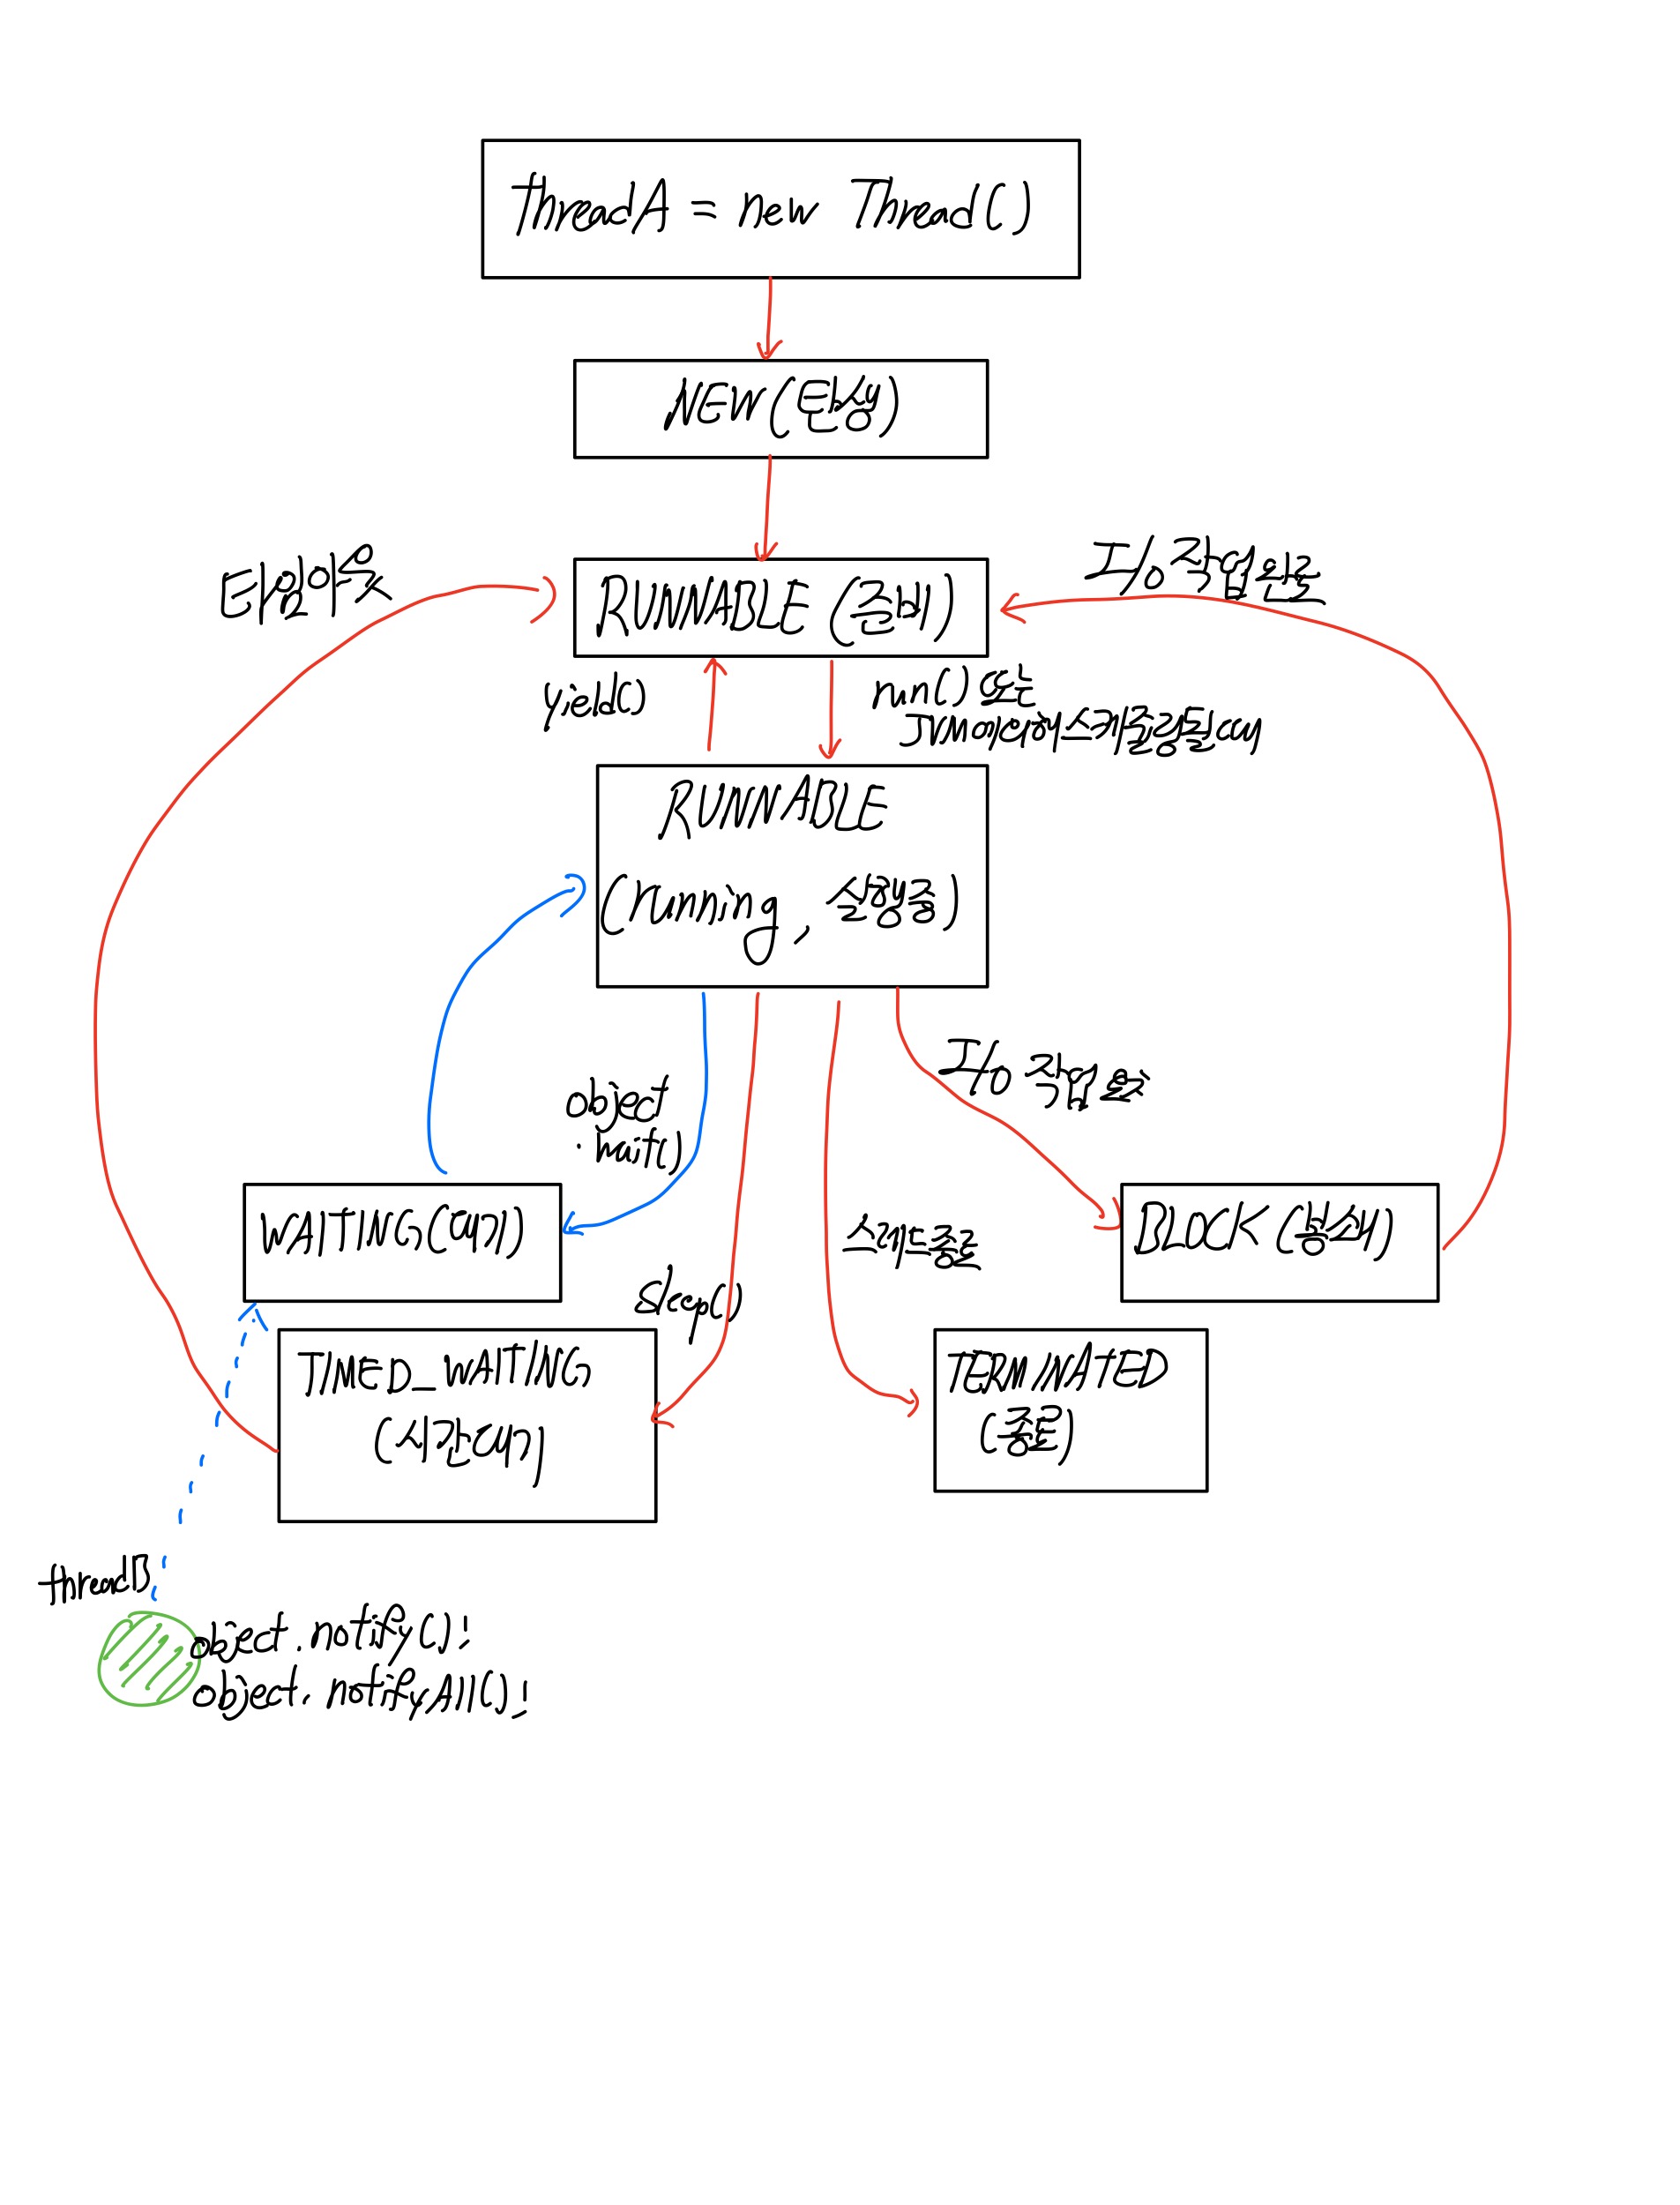 threadA = new Thread()
NEW(탄생)
타임아웃
RUNNABLE (준비)
I/O 작업 완료
yield()
run() 또는
JVM에 의해 스케줄링될 때
RUNNABLE
(running, 수행중)
I/O 작업 요청
object
.wait()
WAITING(대기)
스레드 종료
BLOCK (블락)
sleep()
TIMED_WAITING
(시간 대기)
TERMINATED
(종료)
threadB
object.notify()!
object.notifyAll()!